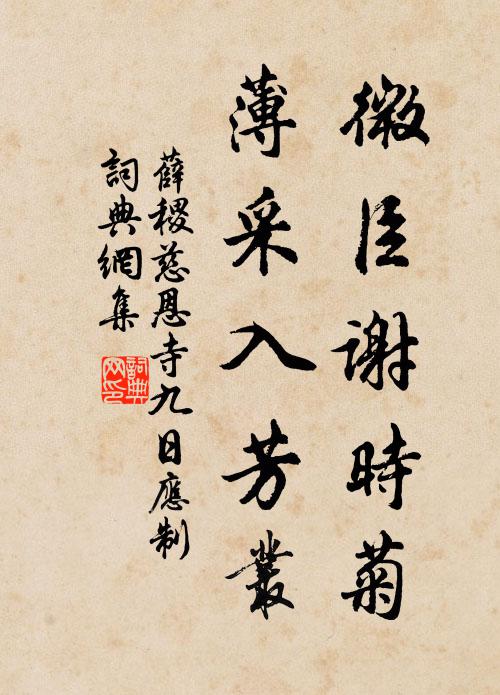 微臣謝時菊
薄采入芳叢
薛稷慈恩寺九日應制
詞典網集
詞典网印